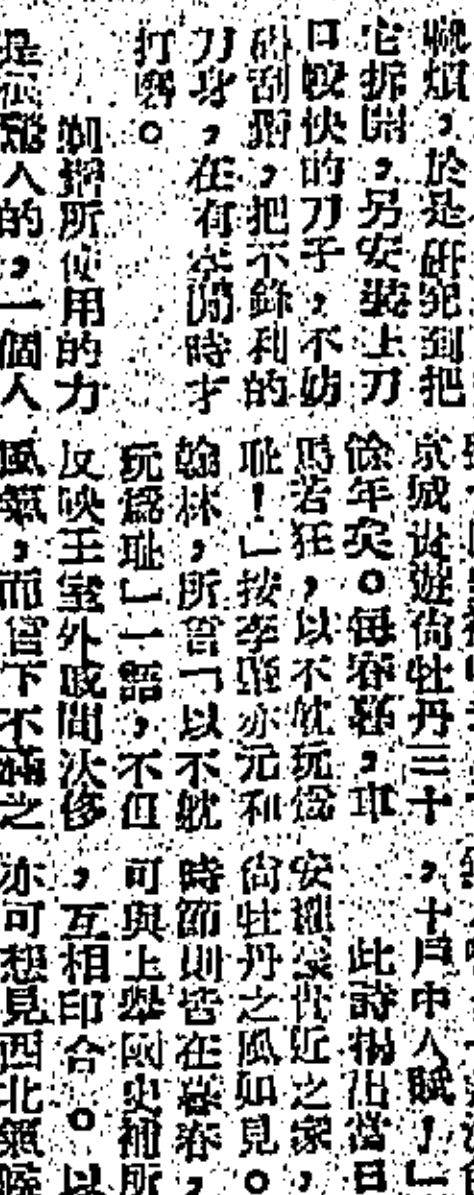 煩，於是研究到把
它拆開，另安裝上刀
口較快的刀子，不妨
刮鬍，把不鋒利的
刀身，在有空閒時才
打磨。
所使用的力
是很驚人的，一個人
京城貴遊尚牡丹三十
餘年矣。每春暮，車
馬若狂，以不耽玩爲
恥！」按李肇亦元和
翰林，所言「以不耽
玩爲恥」一語，不但
反映王室外戚間汰侈
風氣，而官下不滿之
，十戶中人賦！」
此詩揭出當日
安權豪貴近之家，
尚牡丹之風如見。
時節則皆在暮春，
可與上舉國史補所
，互相印合。以
亦可想見西北氣候